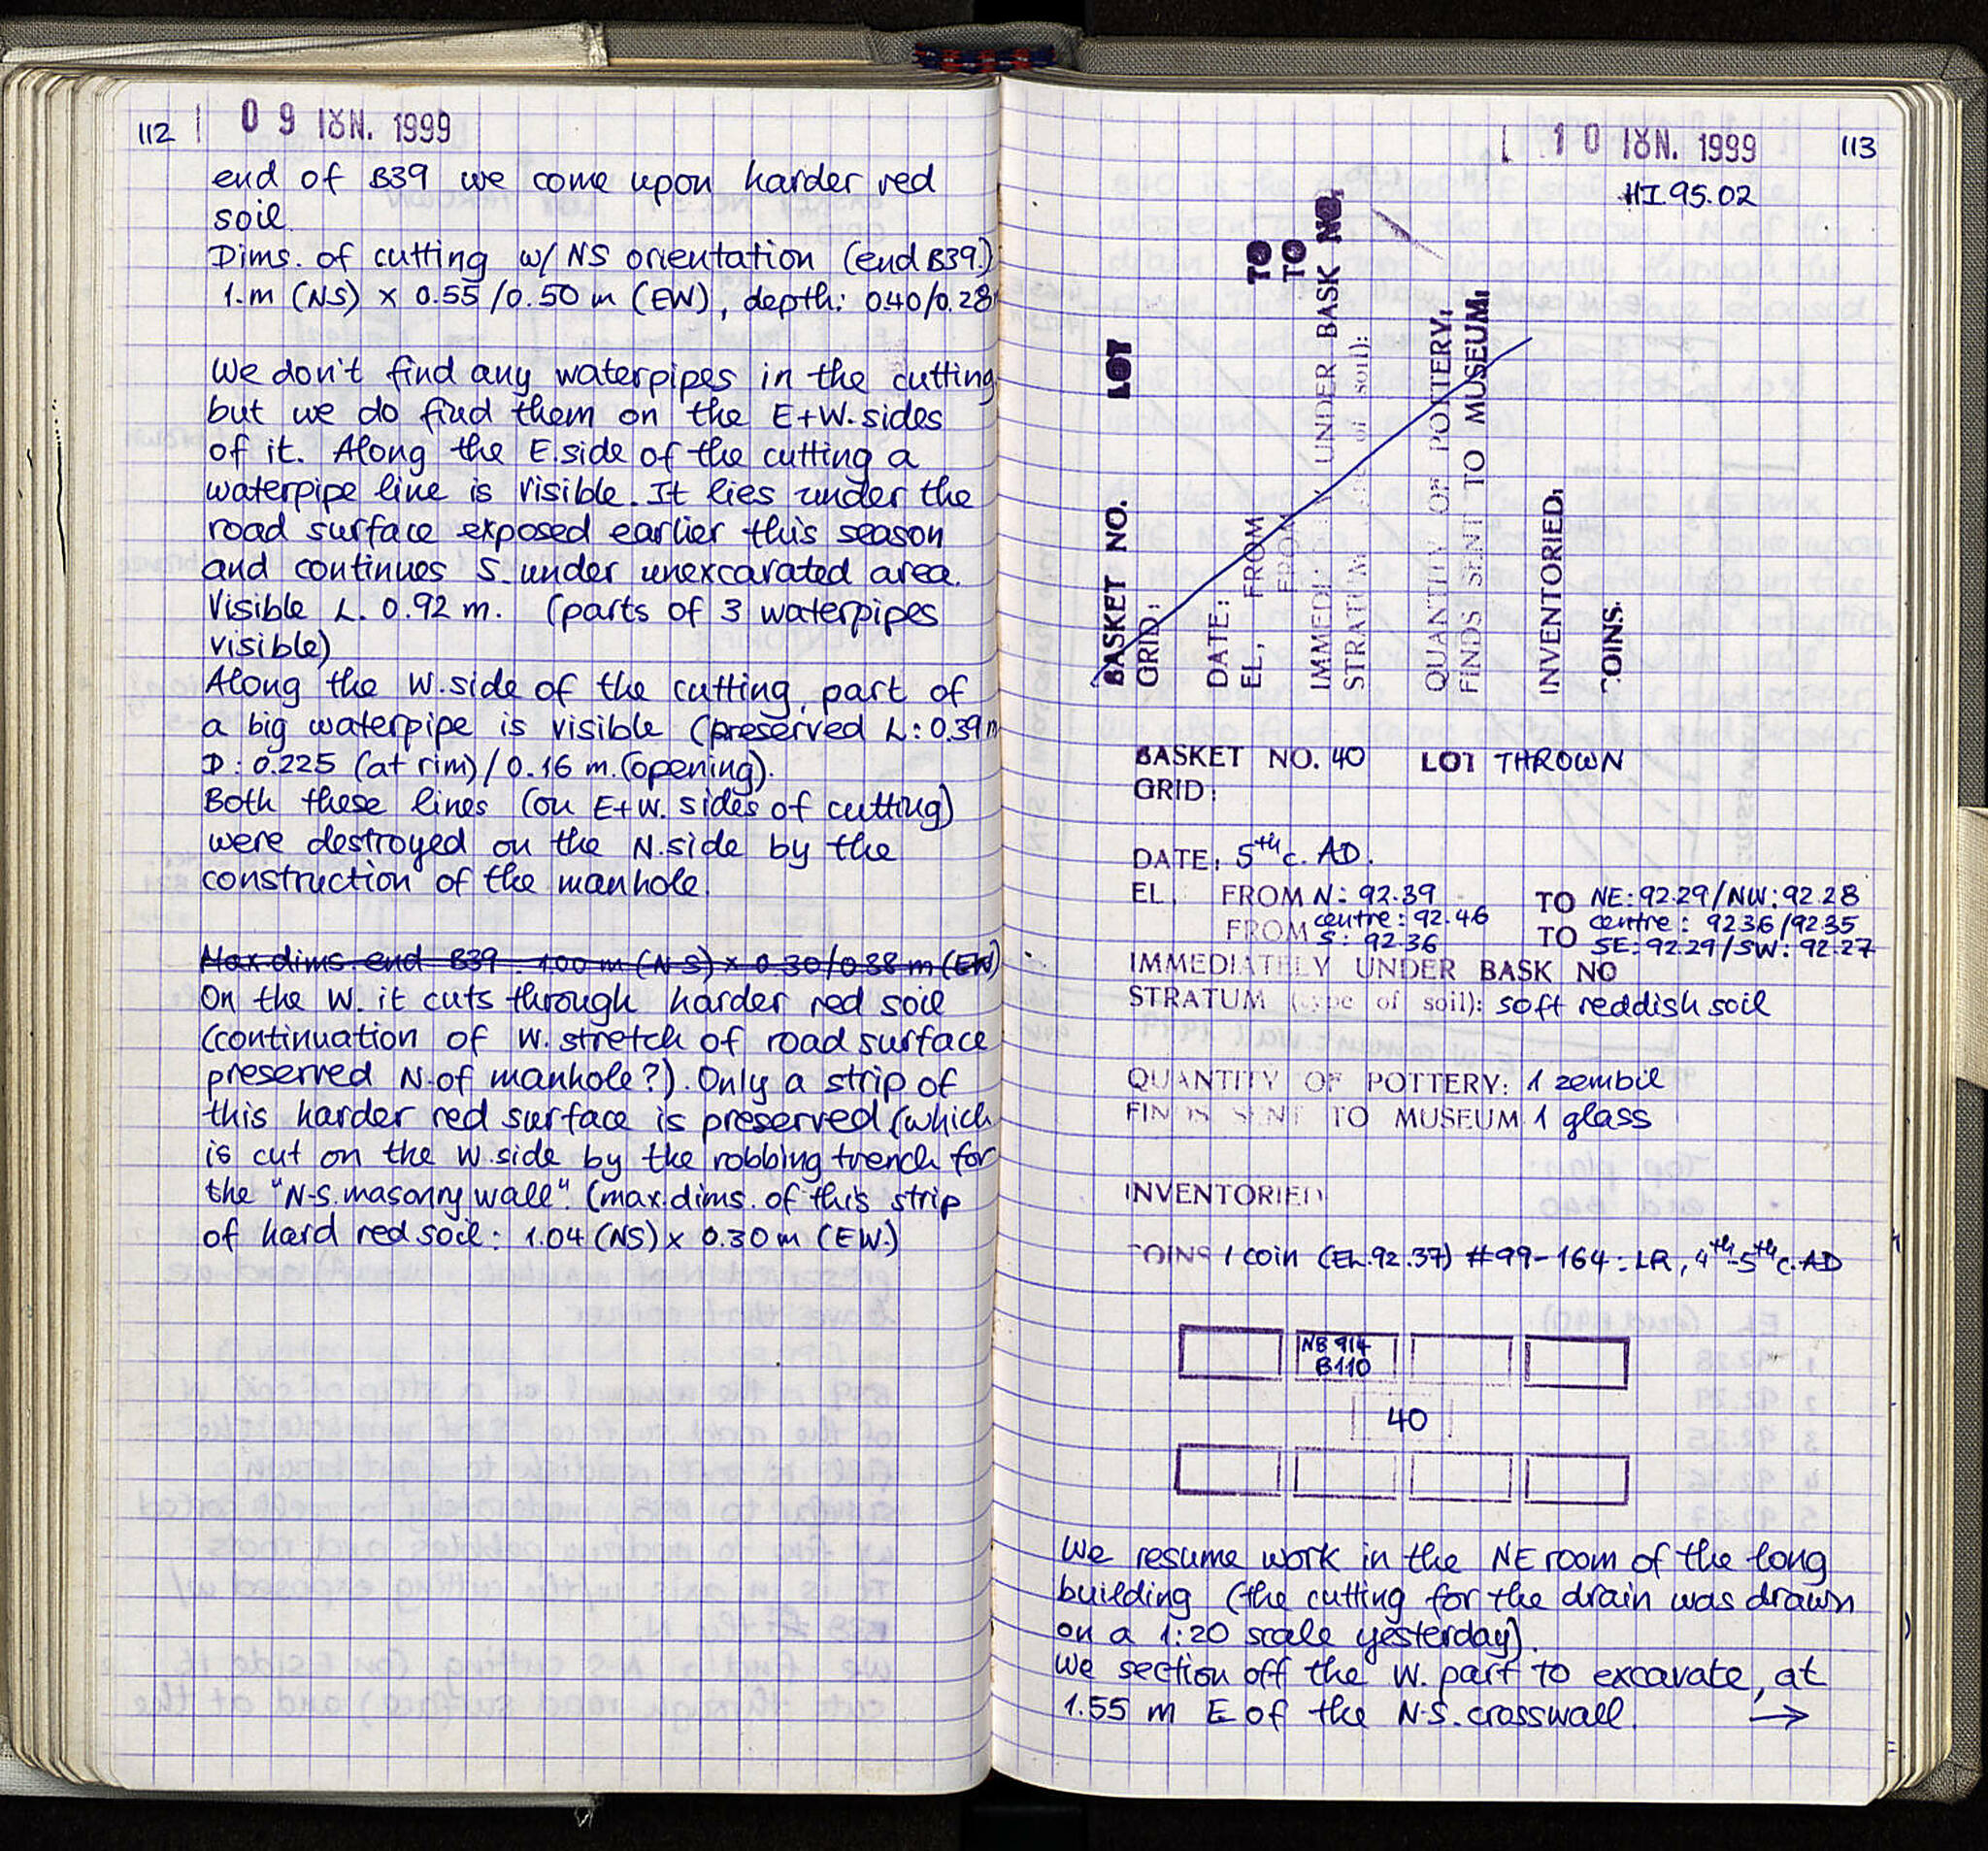 112 09 ΙȣΝ. 1999
end of B39 we come upon harder red
soil.
Dims. of cutting w/ NS orientation (end B39.)
1.m (NS) x 0.55/0.50 m (EW), depth: 0.40/0.28
We don't find any waterpipes in the cutting
but we do find them on the E+W. sides
of it. Along the E. side of the cutting a
waterpipe line is visible. It lies under the
road surface exposed earlier this season
and continues S. under unexcavated area.
Visible L. 0.92 m. (parts of 3 waterpipes
visible)
Along the W. side of the cutting, part of
a big waterpipe is visible (preserved L: 0.39m
D: 0.225 (at rim)/0.16 m. (opening).
Both these lines (on E+W. sides of cutting)
were destroyed on the N. side by the
construction of the manhole.
Max dims. end B39: 1.00 m (N-S) x 0.30/0.38 m (EW)
On the W. it cuts through harder red soil
(continuation of W. stretch of road surface
preserved N. of manhole?). Only a strip of
this harder red surface is preserved (which
is cut on the W. side by the robbing trench for
the "N-S. masonry wall". (max. dims. of this strip
of hard red soil: 1.04 (NS) x 0.30 m (EW.)
10 ΙȣΝ. 1999 113
HI.95.02
BASKET NO. LOT
GRID:
DATE:
EL, FROM TO
FROM TO
IMMEDI UNDER BASK NO.
STRATUM of soil):
QUANTITY OF POTTERY:
FINDS SENT TO MUSEUM:
INVENTORIED:
COINS.
BASKET NO. 40 LOT THROWN
GRID:
DATE: 5th c. AD.
EL, FROM N: 92.39 TO NE: 92.29/NW: 92.28
FROM centre: 92.46 TO centre: 92.36/92.35
S: 92.36 SE: 92.29/SW: 92.27
IMMEDIATELY UNDER BASK NO
STRATUM (type of soil): soft reddish soil
QUANTITY OF POTTERY: 1 zembil
FINDS SENT TO MUSEUM 1 glass
INVENTORIED
COINS 1 coin (EL. 92.37) #99-164: LR, 4th-5th c. AD
NB 914
B110
40
We resume work in the NE room of the long
building (the cutting for the drain was drawn
on a 1:20 scale yesterday).
We section off the W. part to excavate, at
1.55 m E of the N-S. crosswall. →